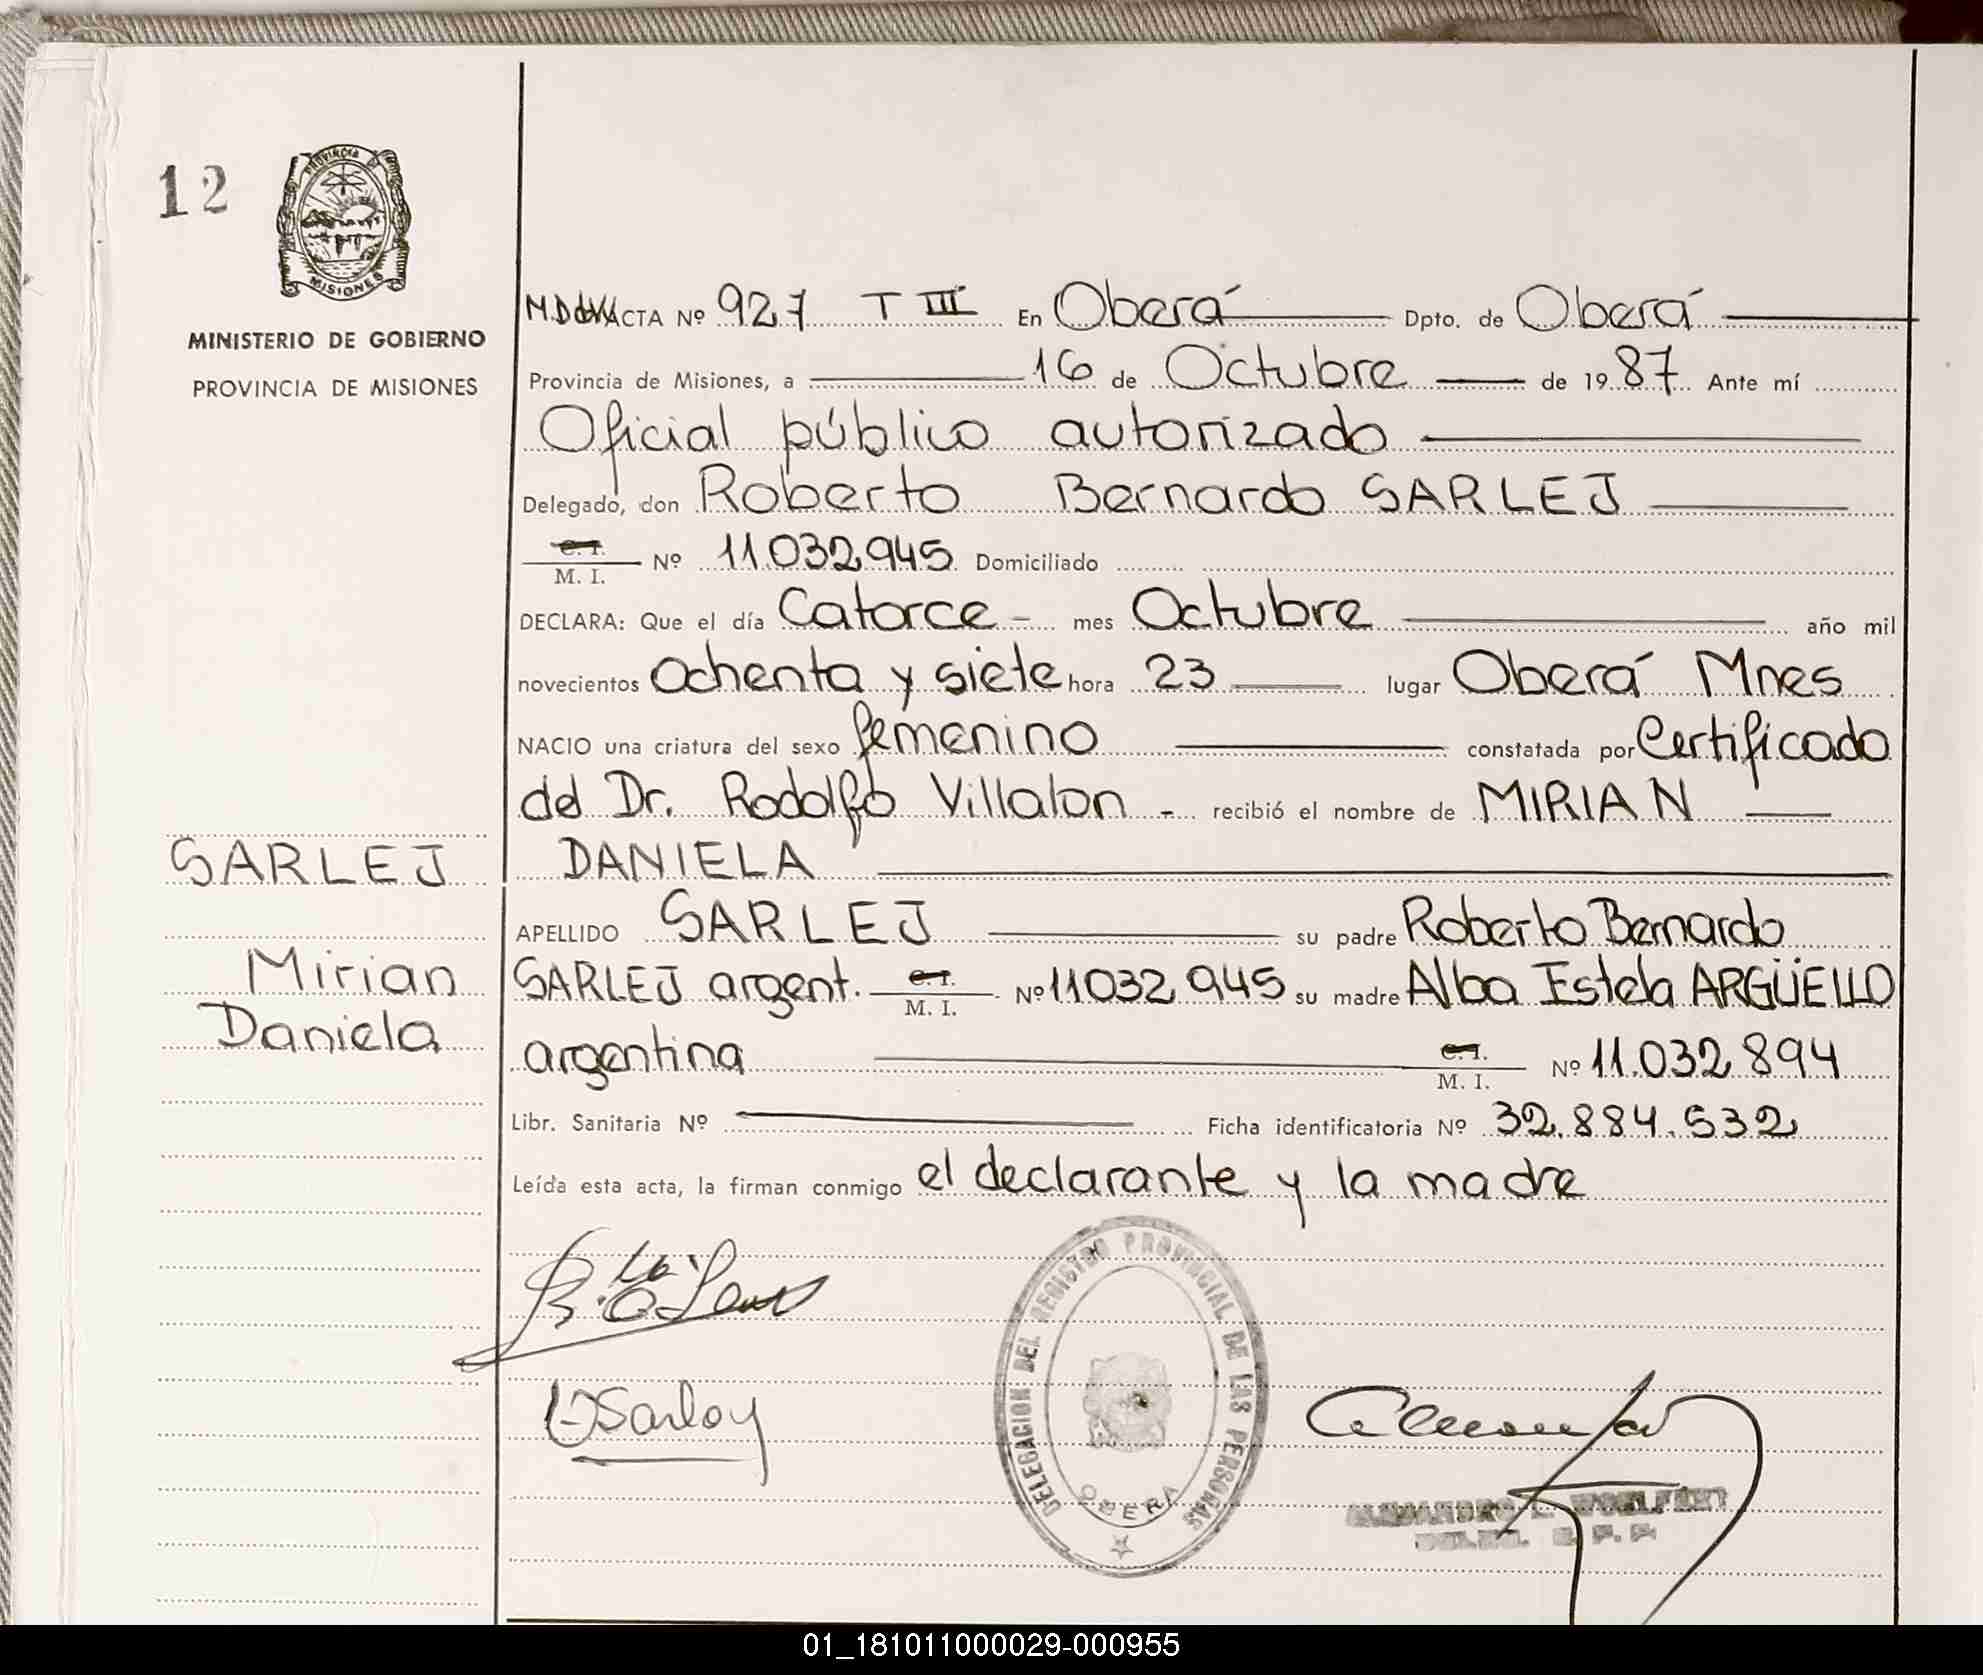 12
PROVINCIA
MISIONES
MINISTERIO DE GOBIERNO
PROVINCIA DE MISIONES
ACTA Nº 927 T III En Oberá Dpto. de Oberá
Provincia de Misiones, a 16 de Octubre de 1987 Ante mí
Oficial público autorizado
Delegado, don Roberto Bernardo SARLEJ
C. I.
M. I. Nº 11.032.945 Domiciliado
DECLARA: Que el día Catorce - mes Octubre año mil
novecientos Ochenta y siete hora 23 lugar Oberá Mnes
NACIO una criatura del sexo femenino constatada por Certificado
del Dr. Rodolfo Villalon - recibió el nombre de MIRIAN
DANIELA
APELLIDO SARLEJ su padre Roberto Bernardo
SARLEJ argent. C. I. M. I. Nº 11.032.945 su madre Alba Estela ARGÜELLO
argentina C. I. M. I. Nº 11.032.894
Libr. Sanitaria Nº Ficha identificatoria Nº 32.884.532
Leída esta acta, la firman conmigo el declarante y la madre
SARLEJ
Mirian
Daniela
DELEGACION DEL REGISTRO PROVINCIAL DE LAS PERSONAS
OBERA
01_181011000029-000955